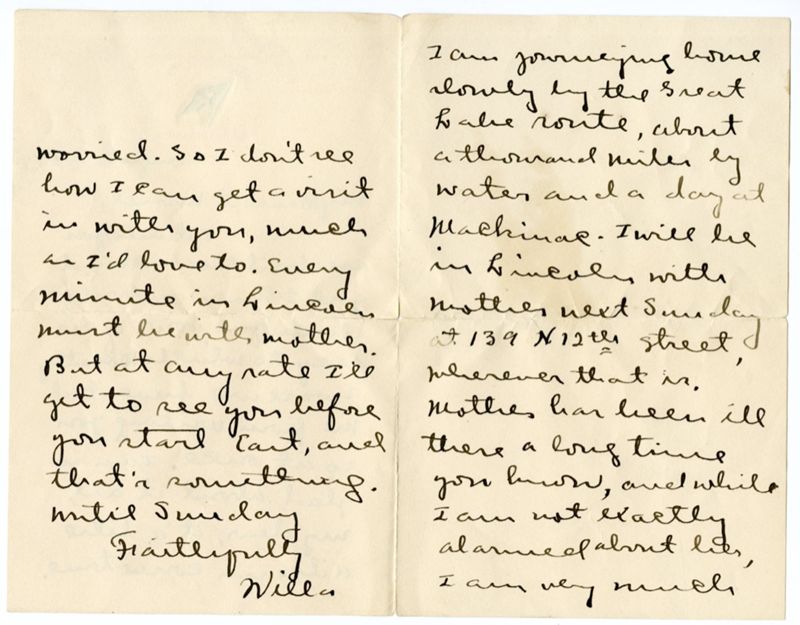 I am journeying home
slowly by the Great
Lake route, about
a thousand miles by
water and a day at
Mackinac. I will be
in Lincoln with
mother next Sunday
at 139 N 12th street,
wherever that is.
Mother has been ill
there a long time
you know, and while
I am not exactly
alarmed about her,
I am very much
worried. So I don't see
how I can get a visit
in with you, much
as I'd love to. Every
minute in Lincoln
must be with mother.
But at any rate I'll
get to see you before
you start East, and
that's something.
Until Sunday
Faithfully
Willa